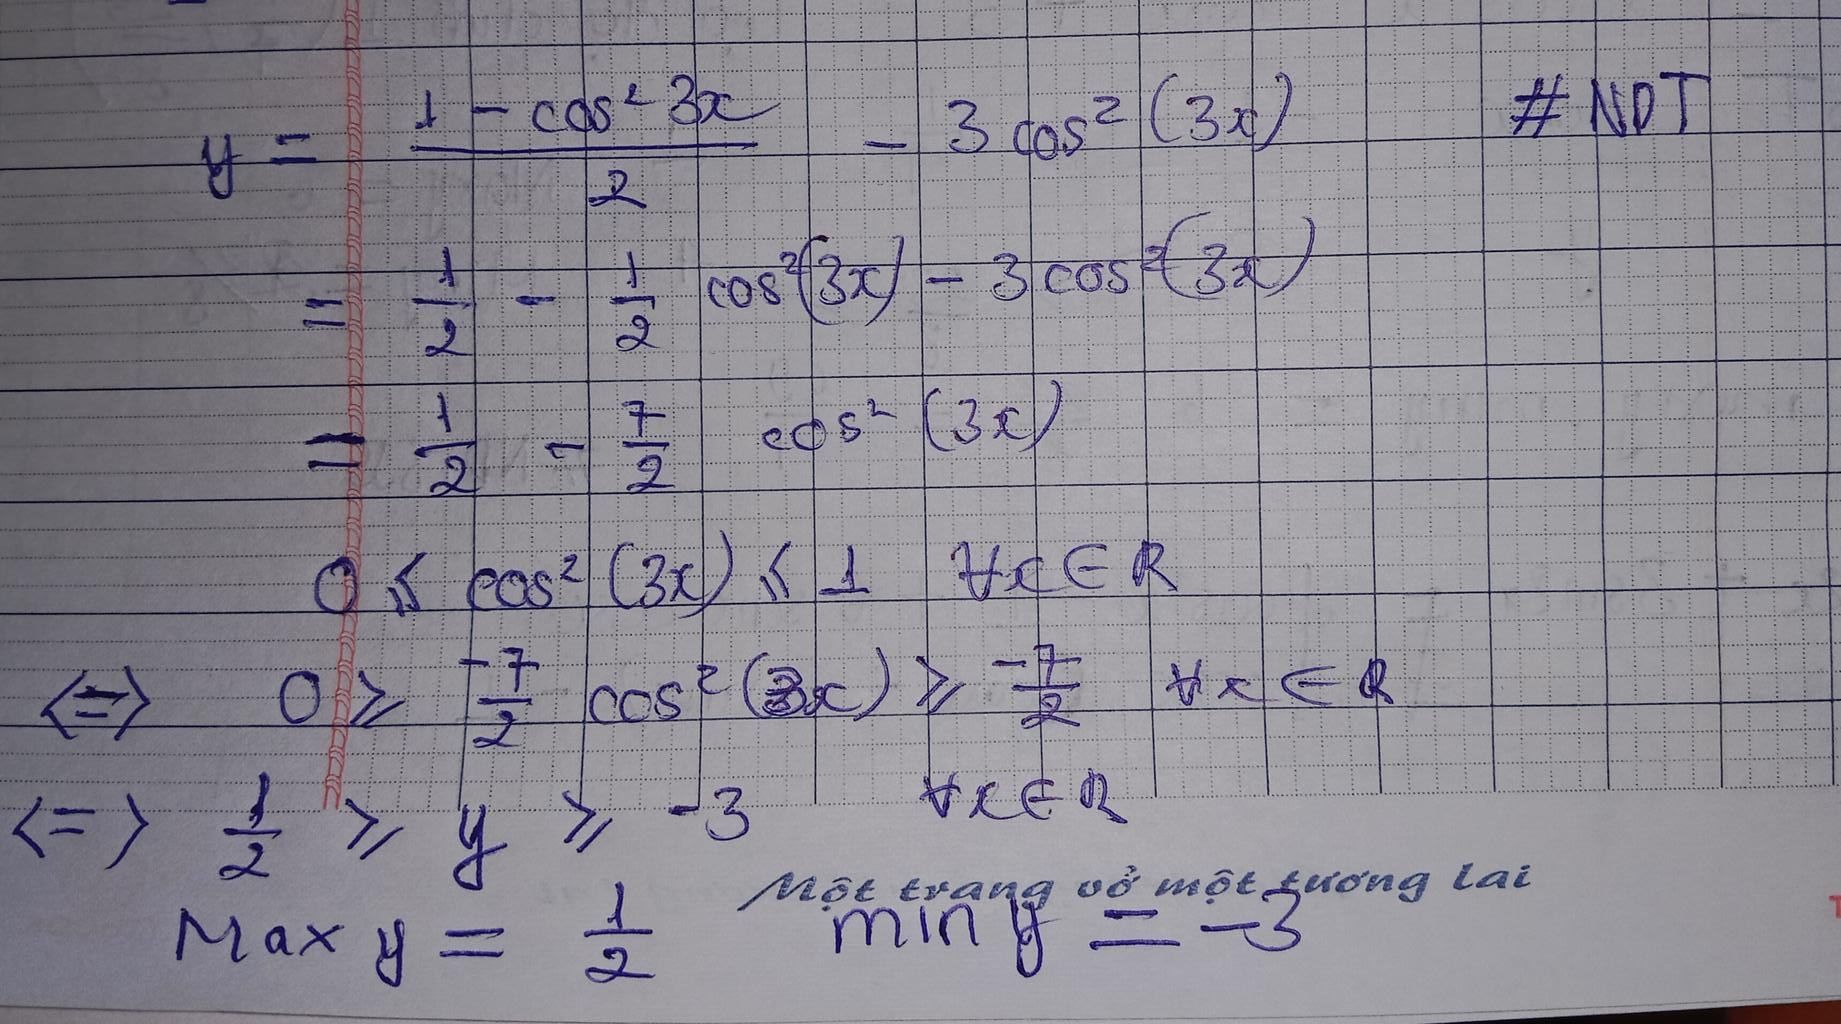 y = \frac{1 - cos² 3x}{2} - 3 cos² (3x) # NDT
= \frac{1}{2} - \frac{1}{2} cos² (3x) - 3 cos² (3x)
= \frac{1}{2} - \frac{7}{2} cos² (3x)
0 ⩽ cos² (3x) ⩽ 1 ∀x ∈ R
<=> 0 ⩾ \frac{-7}{2} cos² (3x) ⩾ \frac{-7}{2} ∀x ∈ R
<=> \frac{1}{2} ⩾ y ⩾ -3 ∀x ∈ R
Một trang vở một tương lai
Max y = \frac{1}{2} min y = -3